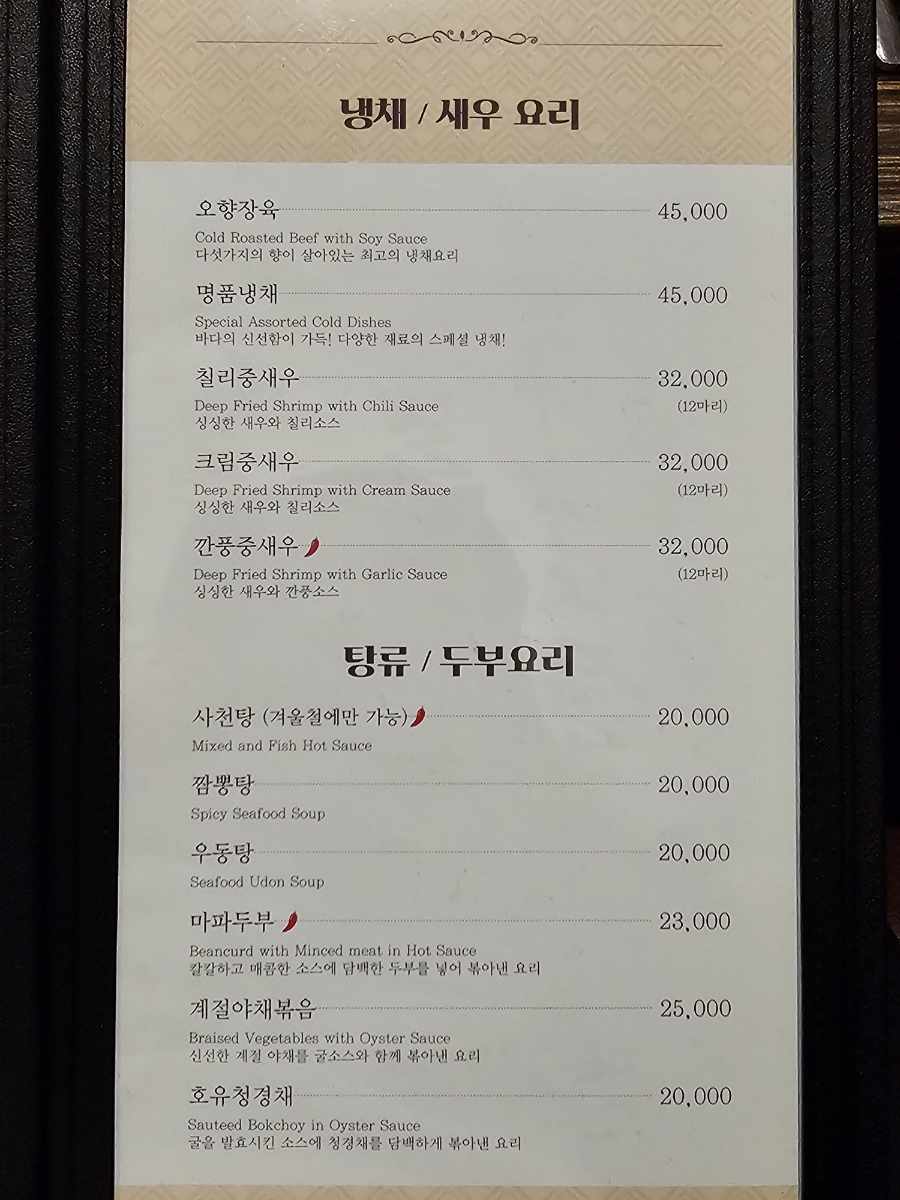 냉채 / 새우 요리
오향장육 45,000
Cold Roasted Beef with Soy Sauce
다섯가지의 향이 살아있는 최고의 냉채요리
명품냉채 45,000
Special Assorted Cold Dishes
바다의 신선함이 가득! 다양한 재료의 스페셜 냉채!
칠리중새우 32,000
Deep Fried Shrimp with Chili Sauce (12마리)
싱싱한 새우와 칠리소스
크림중새우 32,000
Deep Fried Shrimp with Cream Sauce (12마리)
싱싱한 새우와 칠리소스
깐풍중새우 32,000
Deep Fried Shrimp with Garlic Sauce (12마리)
싱싱한 새우와 깐풍소스
탕류 / 두부요리
사천탕 (겨울철에만 가능) 20,000
Mixed and Fish Hot Sauce
짬뽕탕 20,000
Spicy Seafood Soup
우동탕 20,000
Seafood Udon Soup
마파두부 23,000
Beancurd with Minced meat in Hot Sauce
칼칼하고 매콤한 소스에 담백한 두부를 넣어 볶아낸 요리
계절야채볶음 25,000
Braised Vegetables with Oyster Sauce
신선한 계절 야채를 굴소스와 함께 볶아낸 요리
호유청경채 20,000
Sauteed Bokchoy in Oyster Sauce
굴을 발효시킨 소스에 청경채를 담백하게 볶아낸 요리